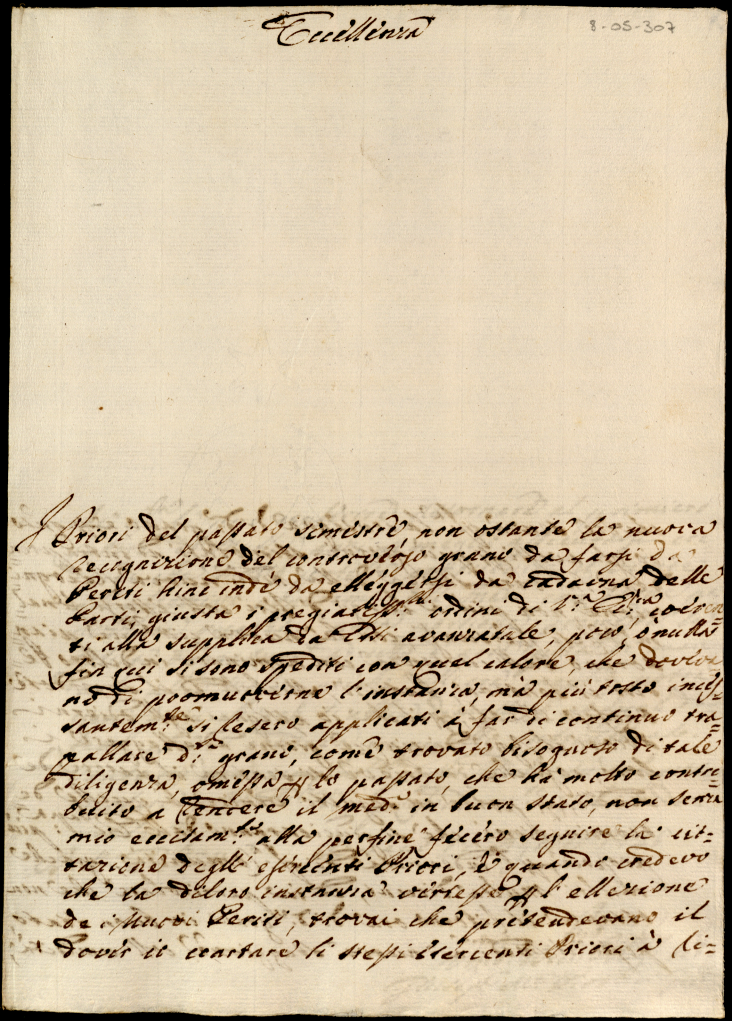 Eccellenza
8-05-307
I Priori del passato semestre, non ostante la nuova
recognizione del controverso grano da farsi da
Periti hinc inde da elleggersi da cadauna delle
Parti, giusta i pregiatiss:mi ordini di V:ra Ecc:za, coeren=
ti alla supplica da essi avanzatale, poco, ò nulla
fin qui si sono spediti con quel calore, che doveva
no di promuoverne l'instanza, mà più tosto inces=
santem:te si resero applicati à far di continuo tra=
pallare d:o grano, come trovato bisognoso di tale
diligenza, omessa p lo passato, che hà molto contri=
buito a tenere il med:o in buon stato, non senza
mio eccitam:to alla perfine fecero seguire la cit=
tazione degl' esercenti Priori, e quando credevo
che la diloro instanza vertesse p l'ellezione
de nuovi Periti, trovai che prettendevano il
dover io coartare li stessi Esercenti Priori à li=